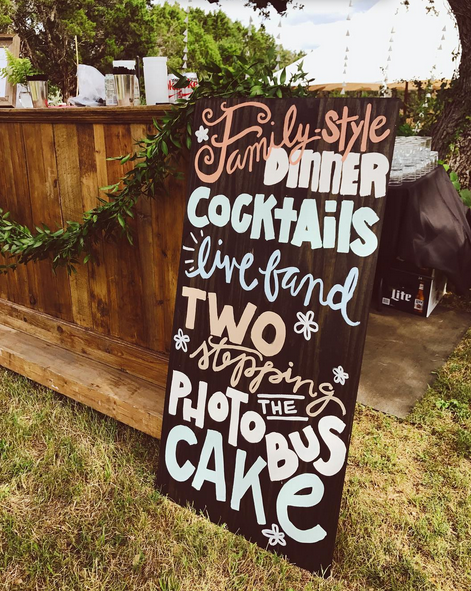 Family-style
DINNER
COCKtAiLS
live band
TWO
stepping
THE
PHOTO BUS
CAKe
Lite